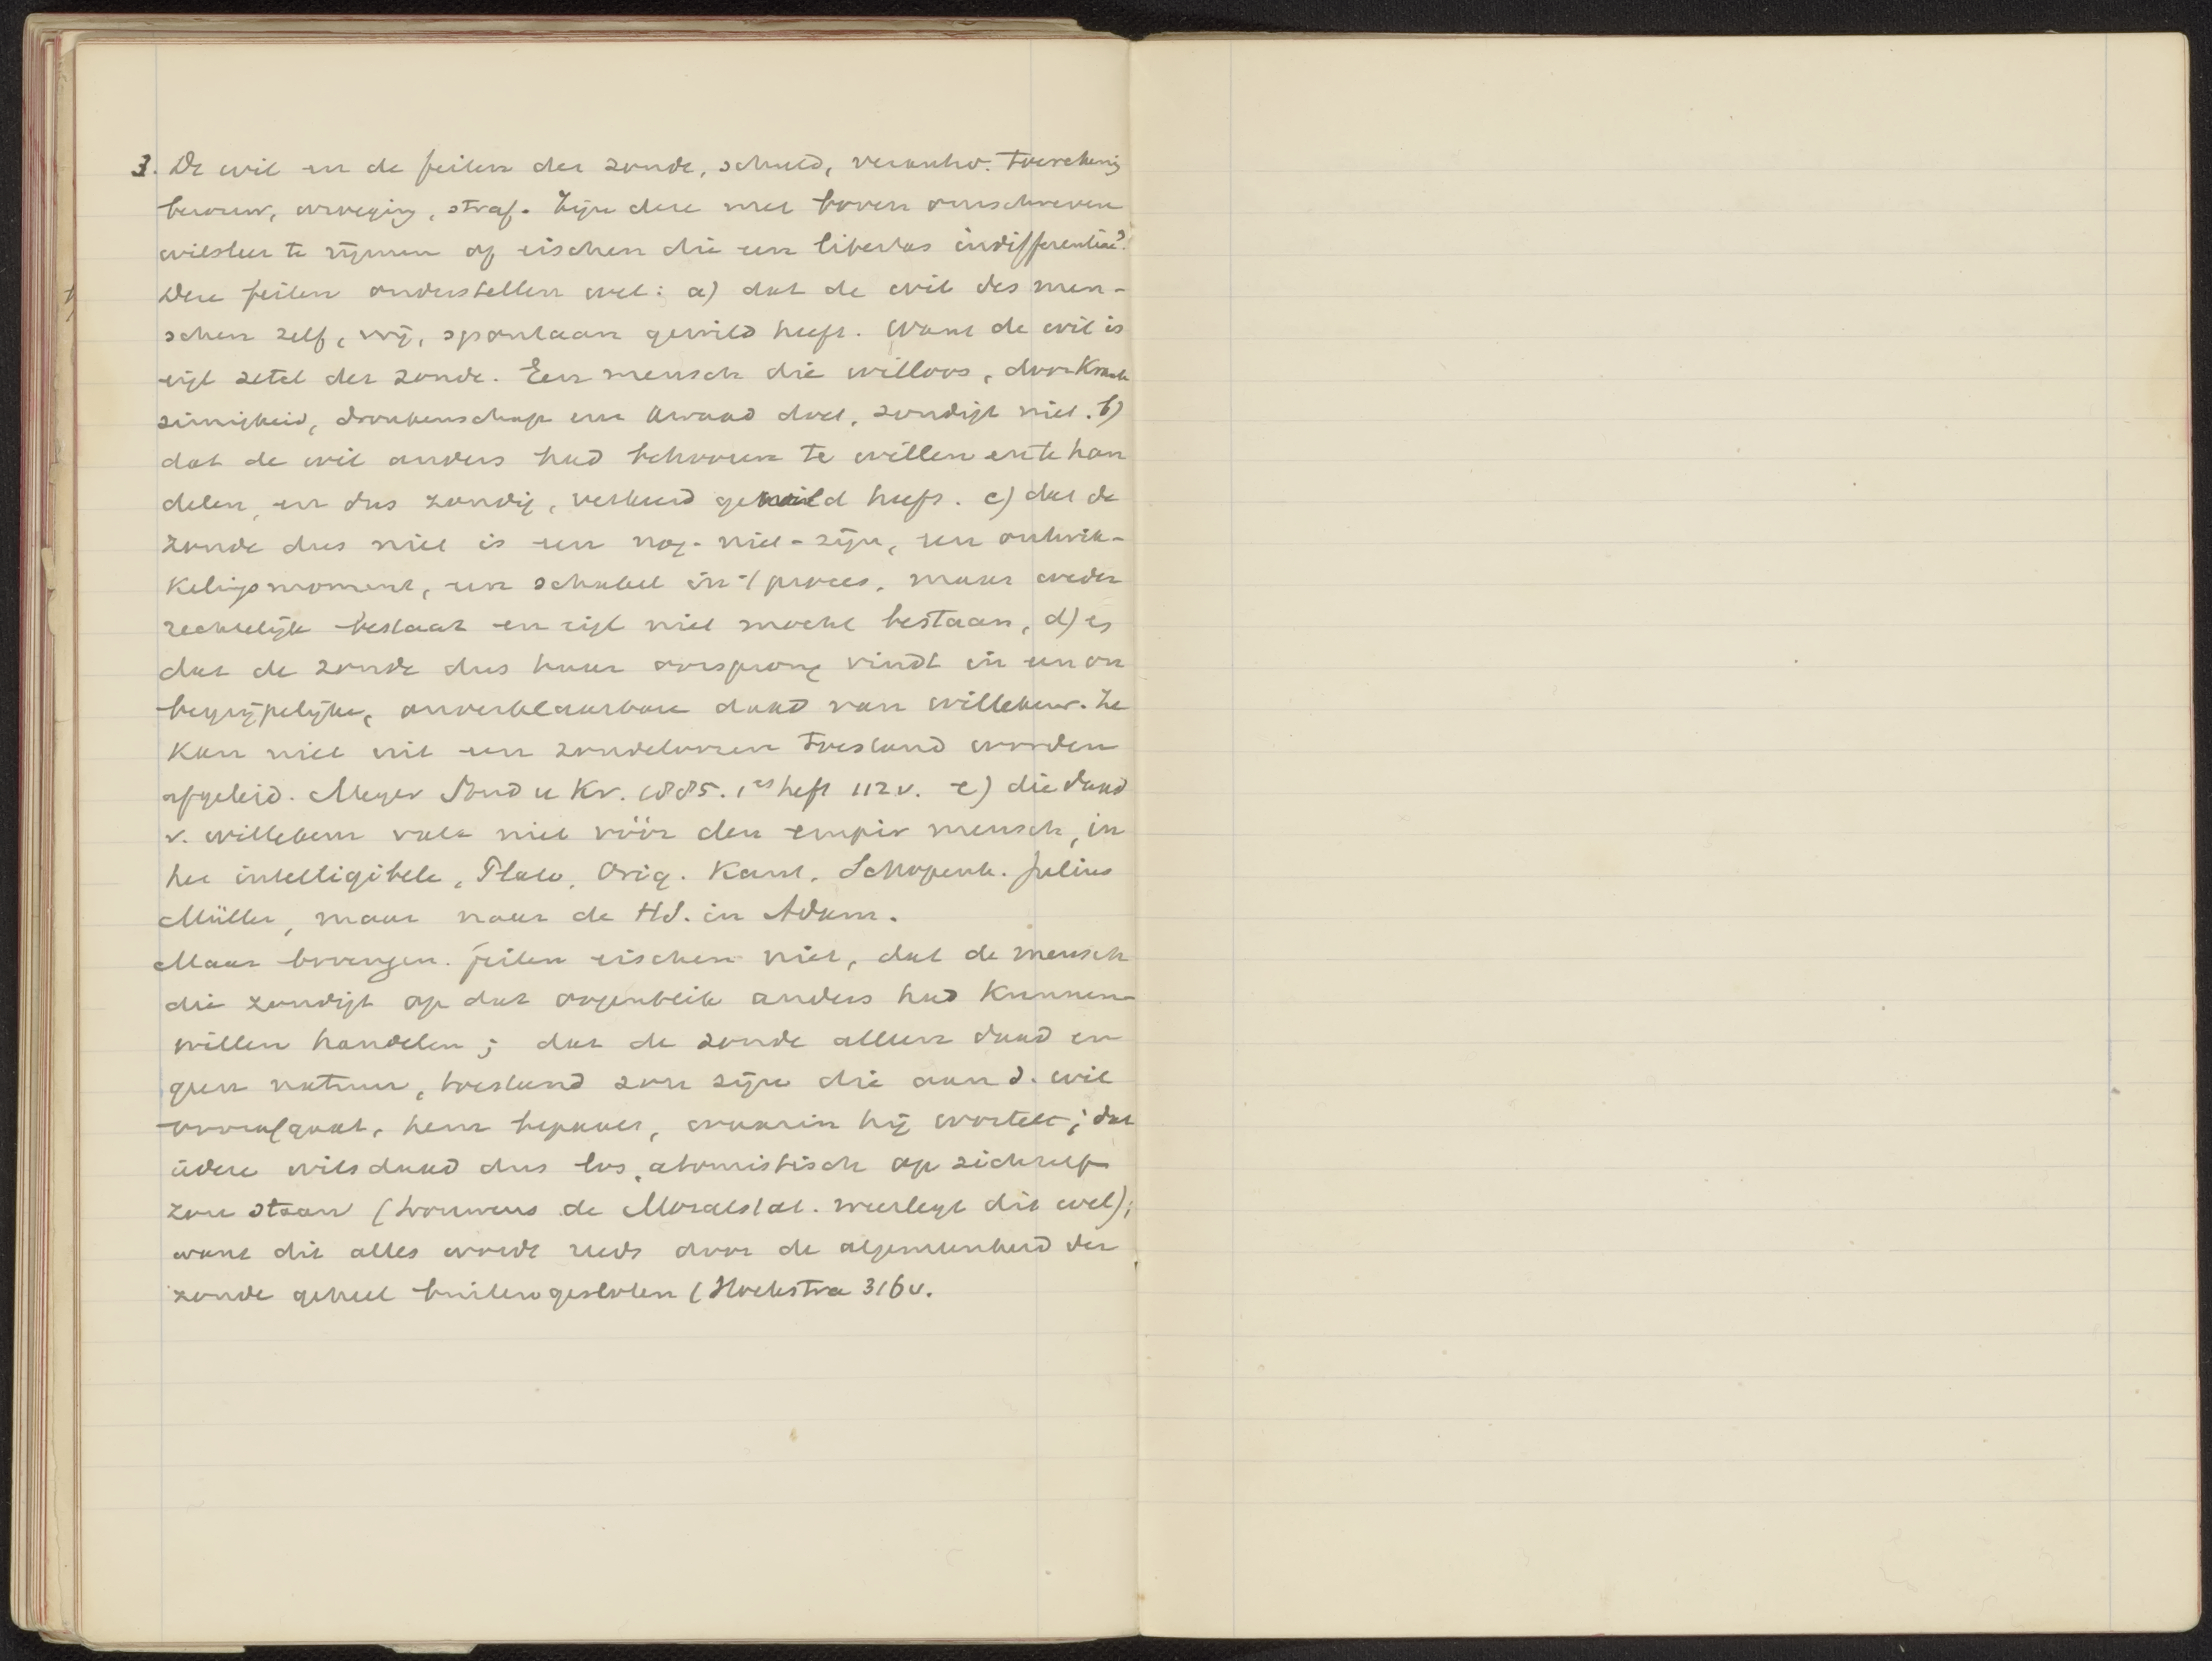 3. De wil en de feiten der zonde, schuld, verantw. toerekenig
berouw, wroeging, straf. Zijn deze met boven omschreven
wilsleer te rijmen of eischen die een libertas indifferentiae?
Deze feiten onderstellen wel: a) dat de wil des men-
schen zelf, vrij, spontaan gewild heeft. Want de wil is
eigl zetel der zonde. Een mensch die willoos, door Krank
zinnigheid, dronkenschap een kwaad doet, zondigt niet. b)
dat de wil anders had behooren te willen en te han
delen, en dus zondig, verkeerd gewild heeft. c) dat de
zonde dus niet is een nog-niet-zijn, een ontwik-
keligsmoment, een schakel in 't proces, maar weder
rechtelijk bestaat en eigl niet mocht bestaan, d) es
dat de zonde dus haar oorsprong vindt in een on
begrijpelijke, onverklaarbare daad van willekeur. Ze
kan niet uit een zondeloozen toestand worden
afgeleid. Meyer Stud u Kr. 1885. 1es heft 112 v. e) die daad
v. willekeur valt niet vóór den empir mensch, in
het intelligibele, Plato, Orig. Kant, Schopenh. Julius
Müller, maar naar de HS. in Adam.
Maar bovengen. feiten eischen niet, dat de mensch
die zondigt op dat oogenblik anders had kunnen
willen handelen; dat de zonde alleen daad en
geen natuur, toestand zou zijn die aan d. wil
voorafgaat, hem bepaalt, waarin hij wortelt; dat
iedere wilsdaad dus los, atomistisch op zichzelf
zou staan (trouwens de Moralstat. weerlegt dit wel);
want dit alles wordt reeds door de algemeenheid der
zonde geheel buitengesloten (Hoekstra 316 v.